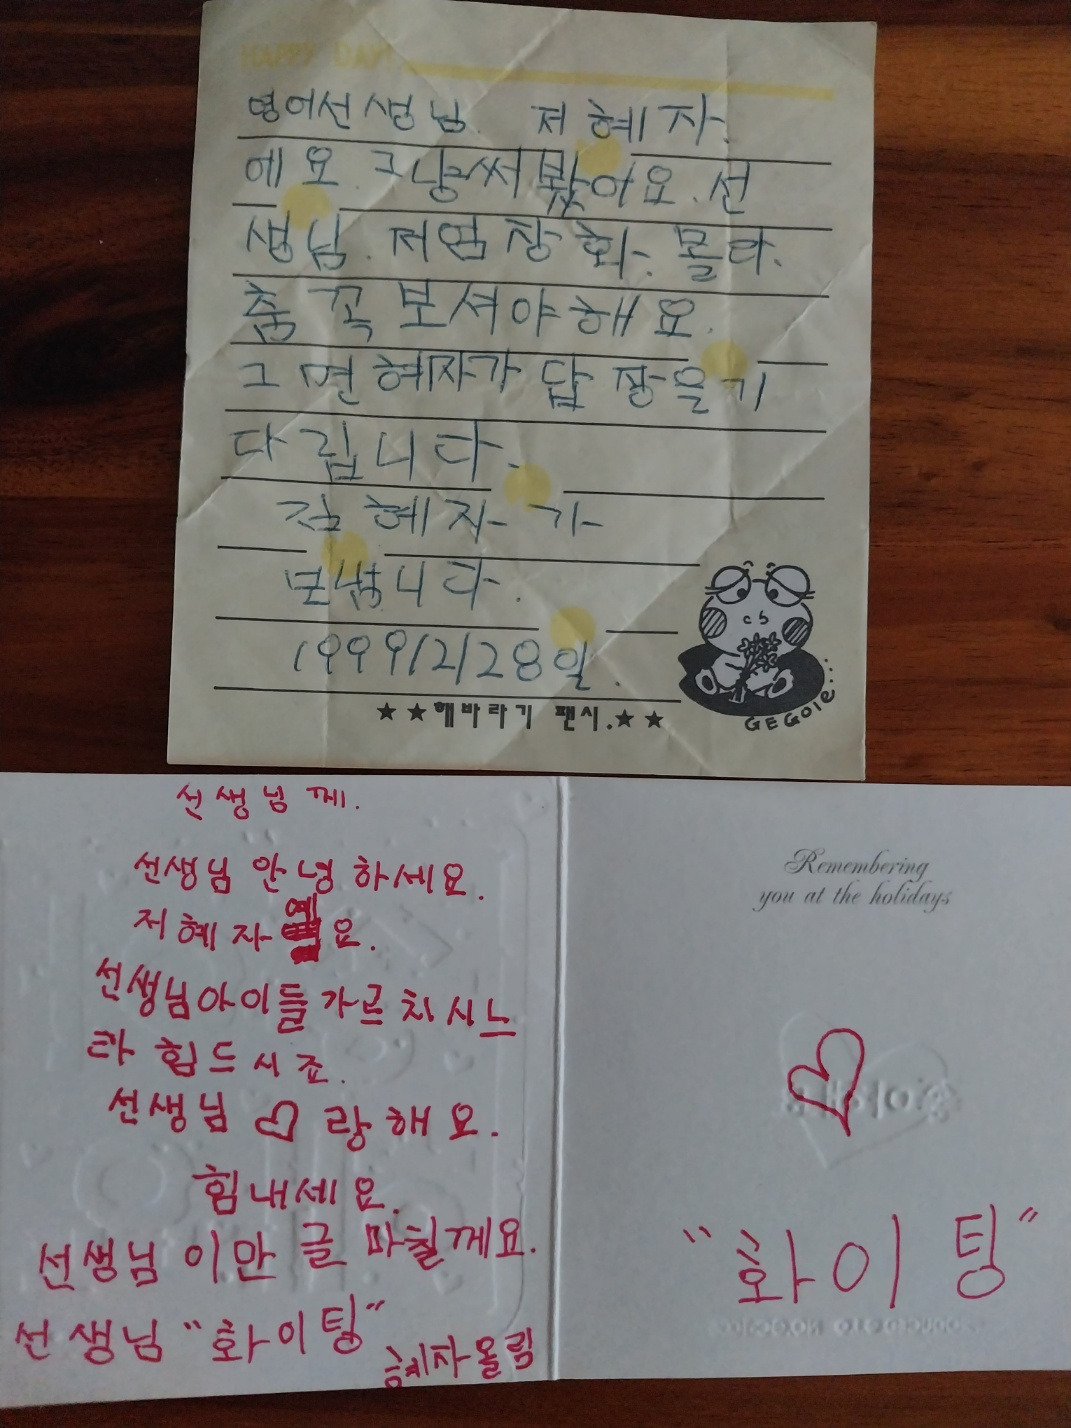 HAPPY DAY
영어선생님. 저 혜자
에요. 그냥써봤어요. 선
생님. 저엄창 화. 몰라.
춤 꼭 보셔야해요.
그면 혜자가 답장을기
다립니다.
김혜자가
보냅니다.
1999/2/28일.
★★해바라기 팬시.★★
GEGOle...
선생님께.
선생님 안녕하세요.
저혜자예요.
선생님아이들가르치시느
라 힘드시죠.
선생님 ♡랑해요.
힘내세요.
선생님 이만 글 마칠께요.
선생님 "화이팅"
혜자올림
Remembering
you at the holidays
♡
"화이팅"